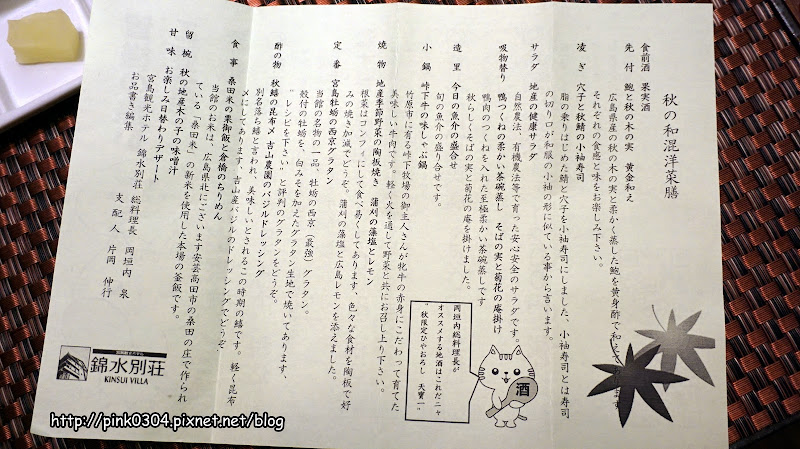 秋の和混洋菜膳
食前酒 果実酒
先付 鮑と秋の木の実 黄金和え
広島県産の秋の木の実と柔かく蒸した鮑を黄身酢で和え
それぞれの食感と味をお楽しみ下さい。
凌ぎ 穴子と秋鯖の小袖寿司
脂の乗りはじめた鯖と穴子を小袖寿司にしました、小袖寿司とは寿司
の切り口が和服の小袖の形に似ている事から言います。
サラダ 地産の健康サラダ
自然農法、有機農法等で育った安心安全のサラダです。
吸物替り 鴨つくねの柔かい茶碗蒸し そばの実と菊花の庵掛け
鴨肉のつくねを入れた至極柔かい茶碗蒸しです
秋らしくそばの実と菊花の庵を掛けました。
造里 今日の魚介の盛合せ
旬の魚介の盛り合せです。
小鍋 峠下牛の味しゃぶ鍋
竹原市に有る峠下牧場の御主人さんが牝牛の赤身にこだわって育てた
美味しい牛肉です。軽く火を通して野菜と共にお召し上り下さい。
焼物 地産季節野菜の陶板焼き 蒲刈の藻塩とレモン
根菜はコンフィにして食べ易くしてあります、色々な食材を陶板で好
みの焼き加減でどうぞ。蒲刈の藻塩と広島レモンを添えました。
定番 宮島牡蛎の西京グラタン
当館の名物の一品、牡蛎の西京(最強)グラタン。
殻付の牡蛎を、白みそを加えたグラタン生地で焼いてあります、
"レシピを下さい"と評判のグラタンをどうぞ。
酢の物 秋鰆の昆布〆 吉山農園のバジルドレッシング
別名落ち鰆と言われ、美味しいとされるこの時期の鰆です。軽く昆布
〆にしてあります、吉山産バジルのドレッシングでどうぞ。
食事 桑田米の栗御飯と倉橋のちりめん
当館のお米は、広島県北にございます安芸高田市の桑田の庄で作られ
ている「桑田米」の新米を使用した本場の釜飯です。
留椀 秋の地産木の子の味噌汁
甘味 お楽しみ日替わりデザート
宮島観光ホテル 錦水別荘 総料理長 岡垣内 泉
お品書き編集 支配人 片岡 伸行
岡垣内総料理長が
オススメする地酒はこれだニャ
"秋限定ひやおろし 天寶一"
酒
錦水別荘
KINSUI VILLA
http://pink0304.pixnet.net/blog